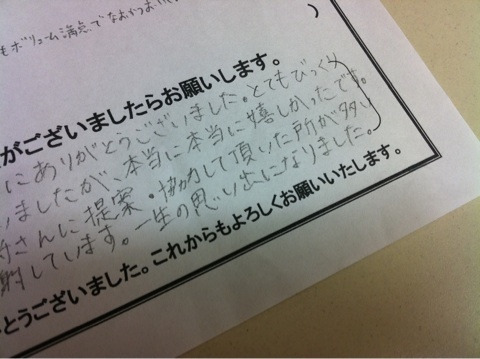 もボリューム満点でなおかつおいし
)
がございましたらお願いします。
にありがとうございました。とてもびっくり
いましたが、本当に本当に嬉しかったです。
さんに提案・協力して頂いた所が多い
謝しています。一生の思い出になりました。
とうございました。これからもよろしくお願いいたします。